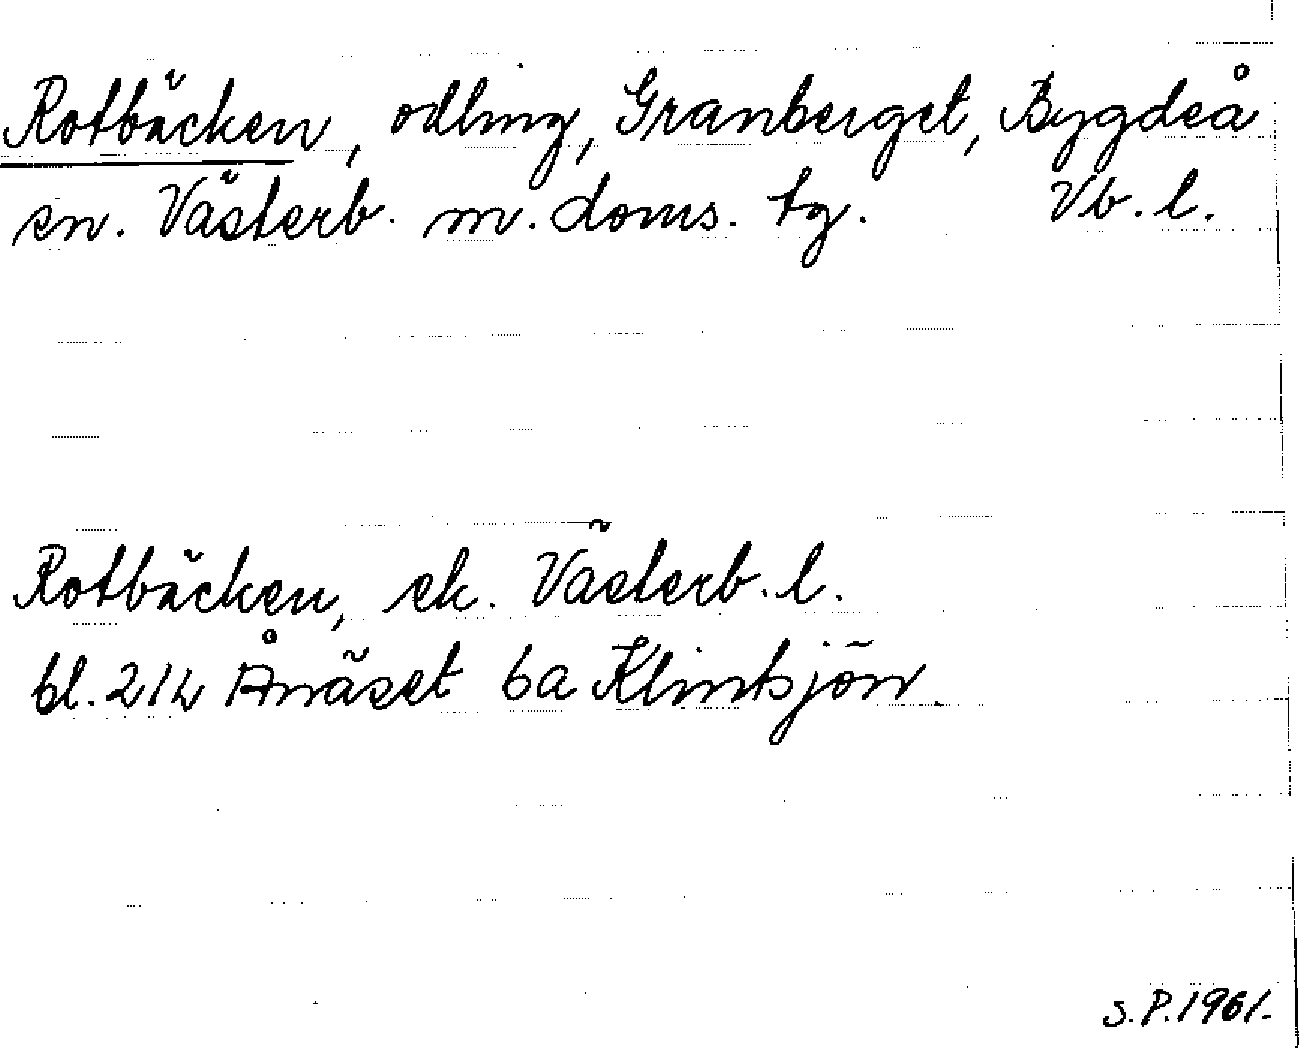 Rotbäcken, odling, Granberget, Bygdeå
sn. Västerb. m. doms. tg. Vb. l.
Rotbäcken, ek. Västerb. l.
bl. 212 Ånäset 6a Klintsjön.
S.P. 1961.